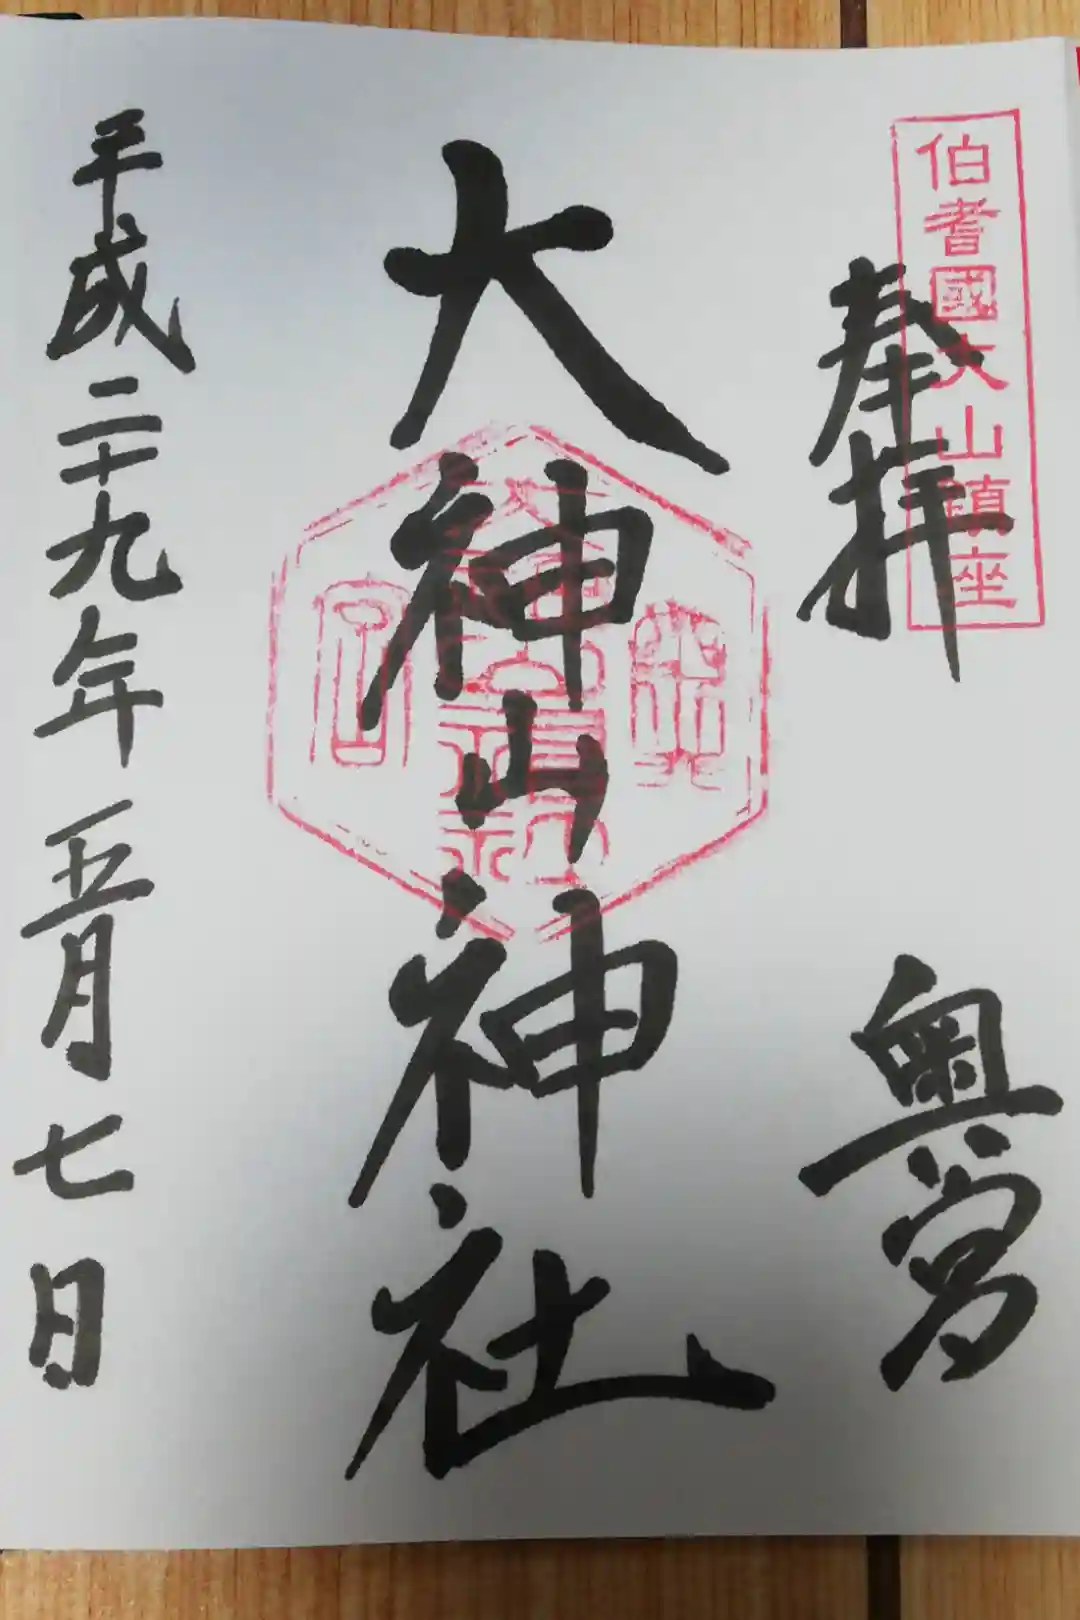 伯耆國大山鎮座
奉拝
奥宮
大神山神社
平成二十九年五月七日